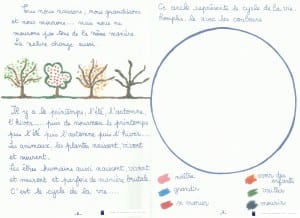 Tous nous naissons, nous grandissons
et nous mourrons... mais nous ne
mourrons pas tous de la même manière.
La nature change aussi
Il y a le printemps, l'été, l'automne,
l'hiver... puis de nouveau le printemps
puis l'été puis l'automne puis l'hiver...
Les animaux, les plantes naissent, vivent
et meurent.
Les êtres humains aussi naissent, vivent
et meurent et parfois de manière brutale.
C'est le cycle de la vie....
Ce cercle représente le cycle de la vie.
Remplis le avec les couleurs
naître
grandir
se marier
avoir des
enfants
vieillir
mourir